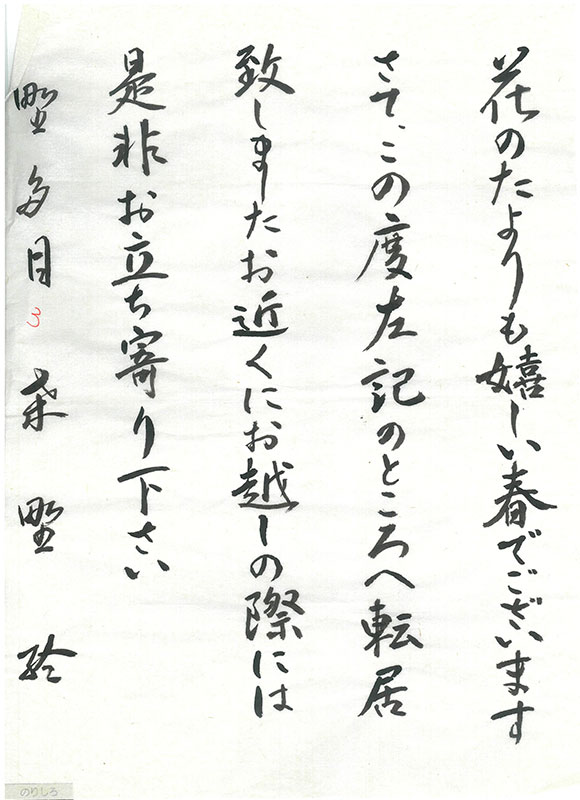 花のたよりも嬉しい春でございます
さて、この度左記のところへ転居
致しましたお近くにお越しの際には
是非お立ち寄り下さい
野多目 3 栄野 玲
のりしろ